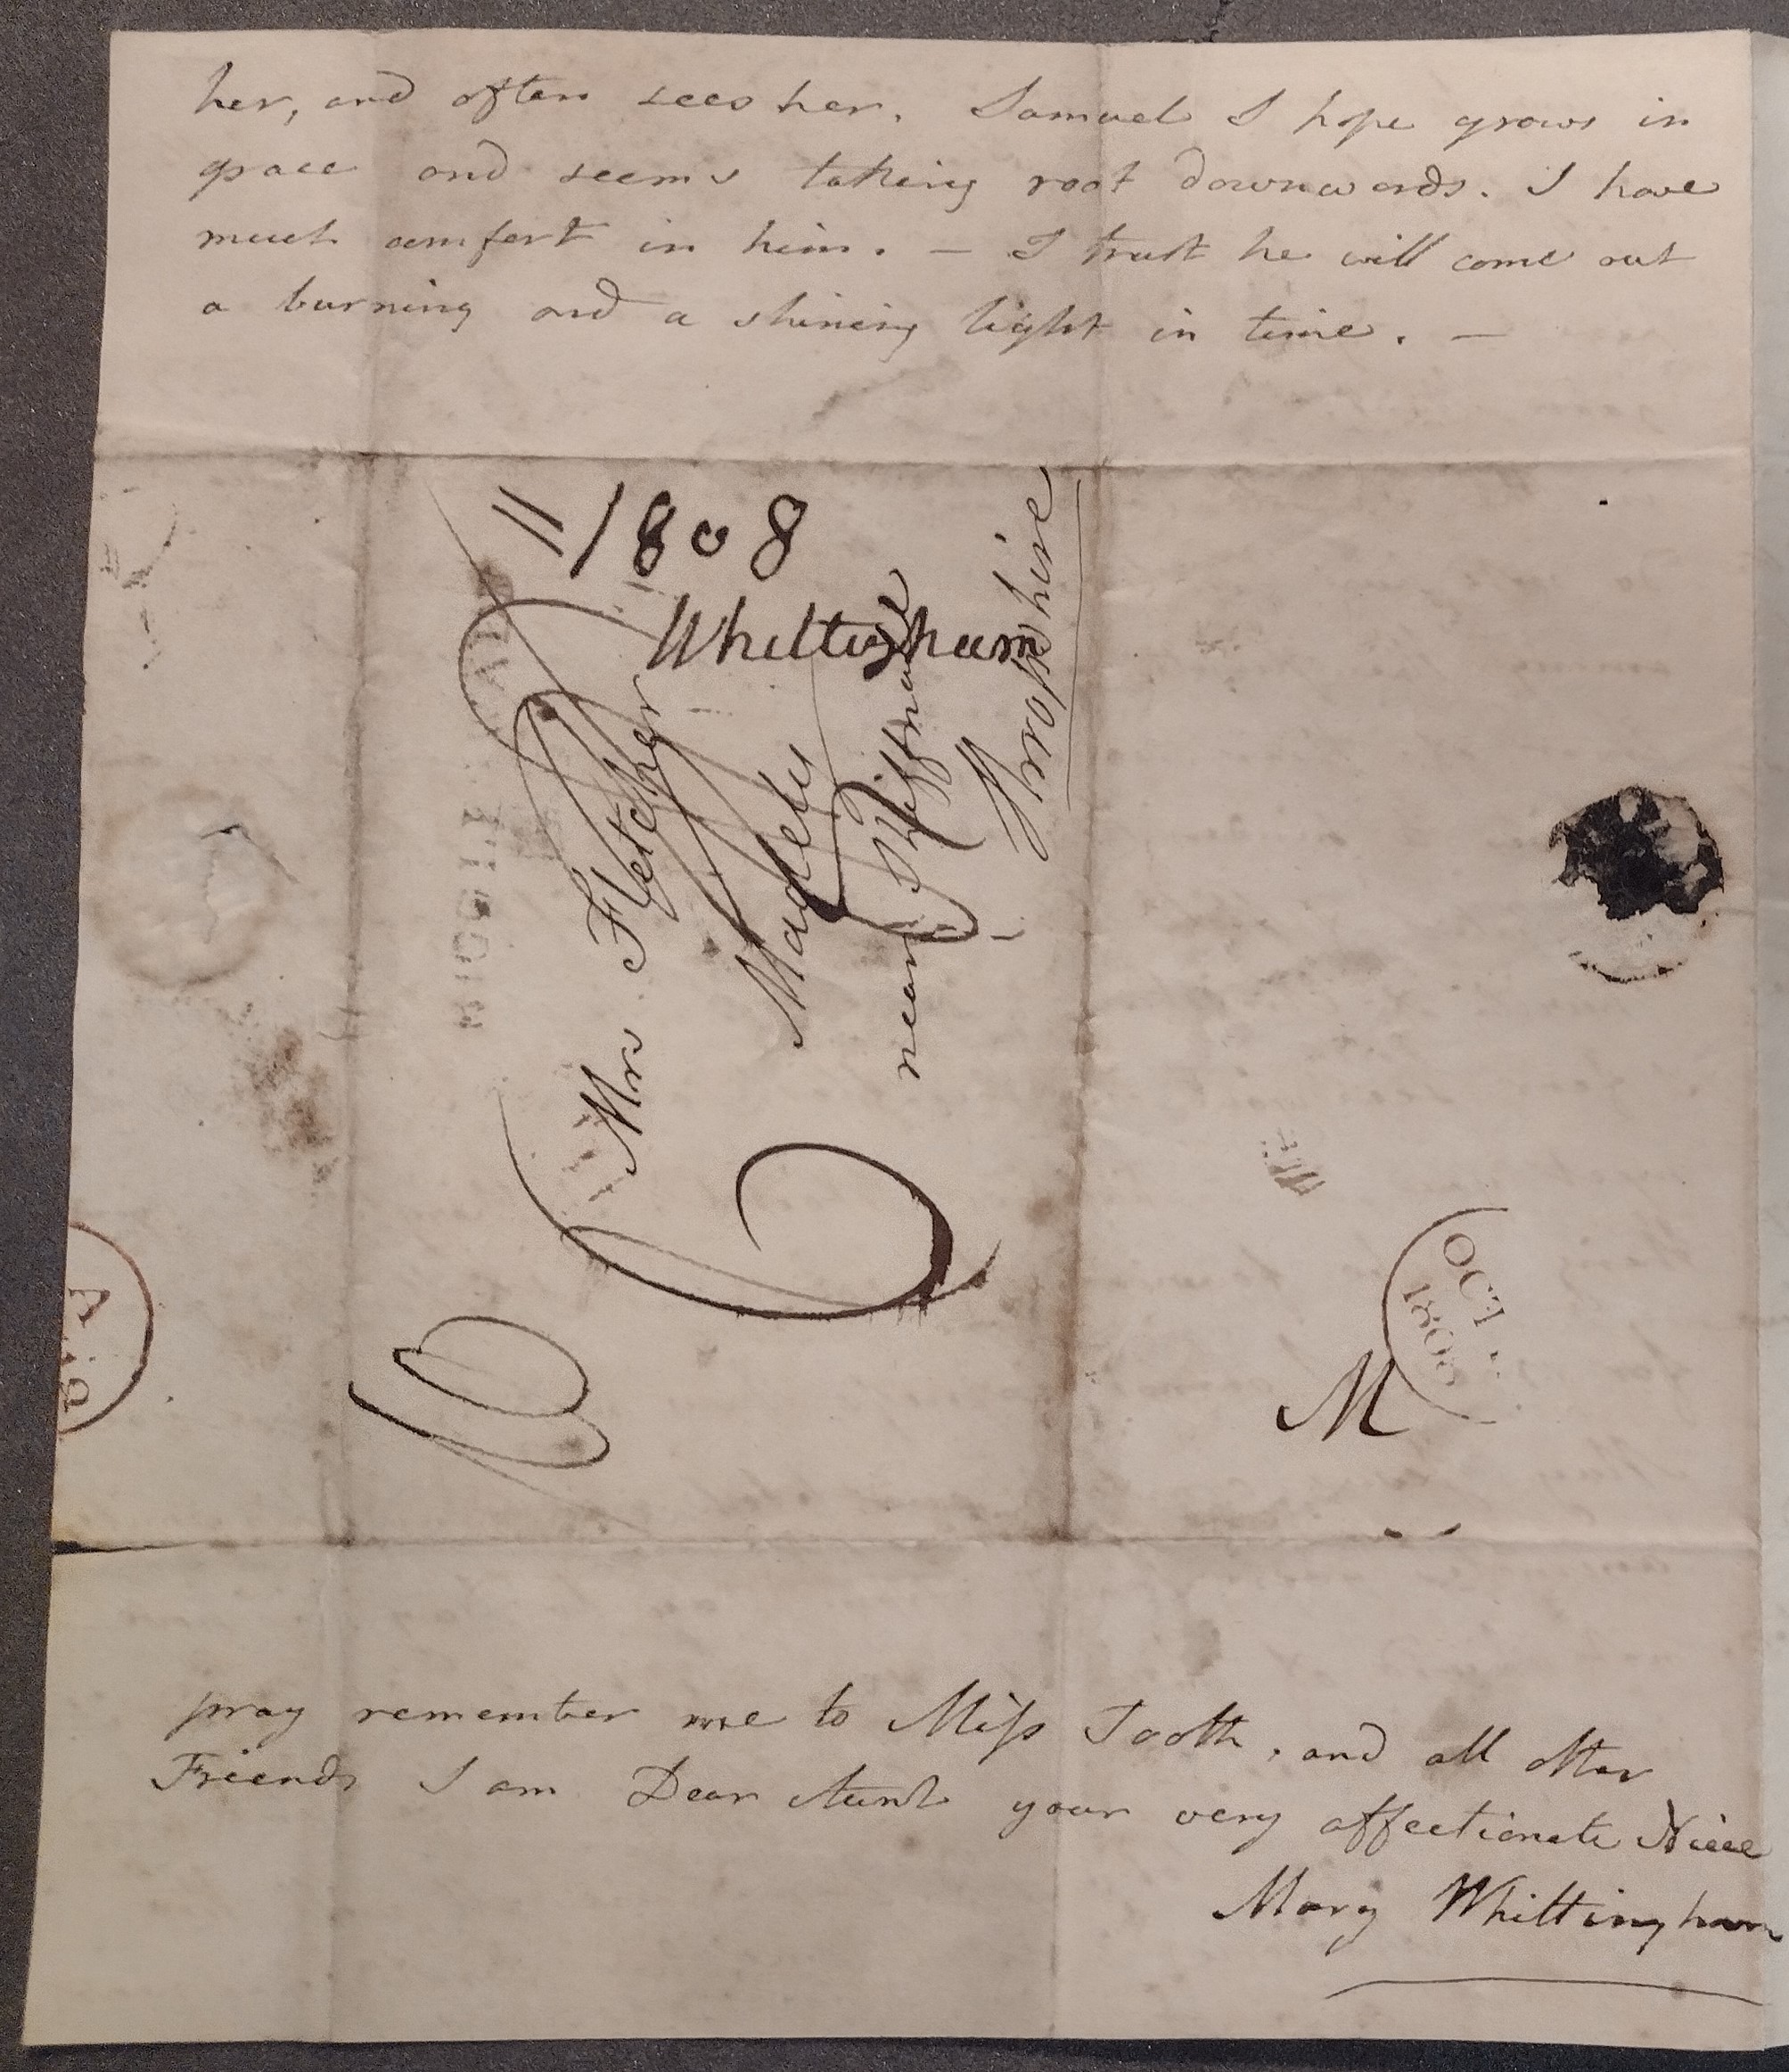 her, and often sees her. Samuel I hope grows in
grace and seems taking root downwards. I have
much comfort in him. — I trust he will come out
a burning and a shining light in time. —
11 1808
Whittingham
Mrs Fletcher
Madeley
near Shiffnal
Shropshire
OCT
180
M
A
pray remember me to Miss Tooth, and all other
Friends I am Dear Aunt your very affectionate Niece
Mary Whittingham